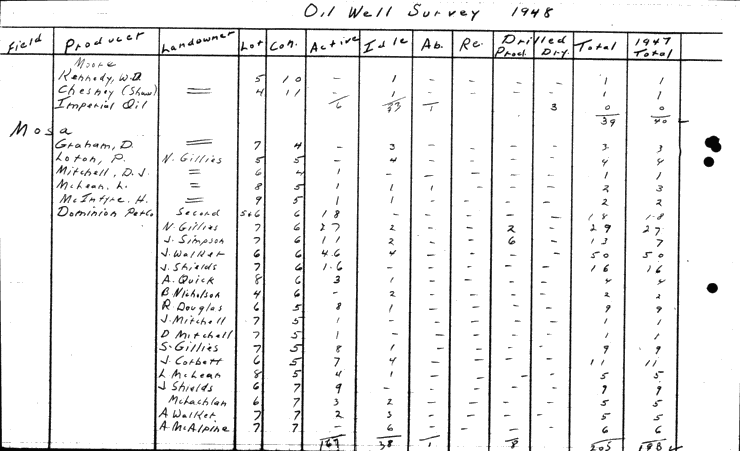 Oil Well Survey 1948
Field Producer Landowner Lot Con. Active Idle Ab. Re. Drilled Prod. Dry. Total 1947 Total
Moore
Kennedy, W.D. 5 10 - 1 - - - - 1 1
Chesney (Shaw) = 4 11 - 1 - - - - 1 1
Imperial Oil 3 0 0
6 33 1 39 40
Mosa
Graham, D. = 7 4 - 3 - - - - 3 3
Loton, P. N. Gillies 5 5 - 4 - - - - 4 4
Mitchell, D. J. = 6 4 1 - - - - - 1 1
McLean, L. = 8 5 1 1 1 - - - 2 3
McIntyre, H. = 9 5 1 1 - - - - 2 2
Dominion Petco Second 5+6 6 18 - - - - - 18 18
N. Gillies 7 6 27 2 - - 2 - 29 27
J. Simpson 7 6 11 2 - - 6 - 13 7
J. Walker 6 6 46 4 - - - - 50 50
J. Shields 7 6 16 - - - - - 16 16
A. Quick 8 6 3 1 - - - - 4 4
B Nicholson 4 6 - 2 - - - - 2 2
R Douglas 6 5 8 1 - - - - 9 9
J. Mitchell 7 5 1 - - - - - 1 1
D Mitchell 7 5 1 - - - - - 1 1
S. Gillies 7 5 8 1 - - - - 9 9
J. Corbett 6 5 7 4 - - - - 11 11
L McLean 8 5 4 1 - - - - 5 5
J Shields 6 7 9 - - - - - 9 9
McLachlan 6 7 3 2 - - - - 5 5
A Walker 7 7 2 3 - - - - 5 5
A McAlpine 7 7 - 6 - - - - 6 6
167 38 1 8 205 198